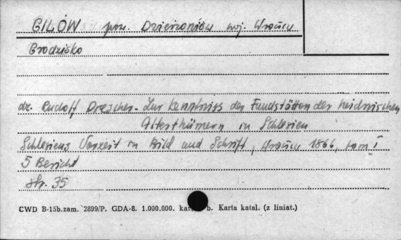 GILÓW pow. Dzierżoniów woj. Wrocław
Grodzisko
dr. Rudolf Drescher - Zur Kenntniss der Fundstätten der heidnischen
Alterthümern in Schlesien
Schlesiens Vorzeit in Bild und Schrift, Wrocław 1866, tom I
5 Bericht
str. 35
CWD B-15b.zam. 2899/P. GDA-8. 1.000.000. Karta katal. (z liniat.)